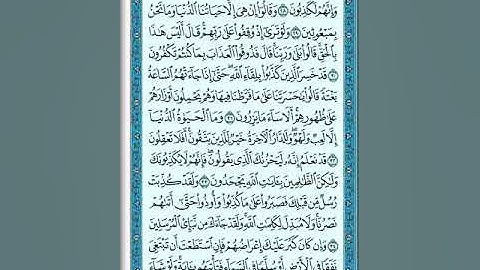 وَإِنَّهُمْ لَكَٰذِبُونَ ٢٨ وَقَالُوٓا۟ إِنْ هِىَ إِلَّا حَيَاتُنَا ٱلدُّنْيَا وَمَا نَحْنُ
بِمَبْعُوثِينَ ٢٩ وَلَوْ تَرَىٰٓ إِذْ وُقِفُوا۟ عَلَىٰ رَبِّهِمْ قَالَ أَلَيْسَ هَٰذَا
بِٱلْحَقِّ قَالُوا۟ بَلَىٰ وَرَبِّنَا قَالَ فَذُوقُوا۟ ٱلْعَذَابَ بِمَا كُنتُمْ تَكْفُرُونَ
٣٠ قَدْ خَسِرَ ٱلَّذِينَ كَذَّبُوا۟ بِلِقَآءِ ٱللَّهِ حَتَّىٰٓ إِذَا جَآءَتْهُمُ ٱلسَّاعَةُ
بَغْتَةً قَالُوا۟ يَٰحَسْرَتَنَا عَلَىٰ مَا فَرَّطْنَا فِيهَا وَهُمْ يَحْمِلُونَ أَوْزَارَهُمْ
عَلَىٰ ظُهُورِهِمْ أَلَا سَآءَ مَا يَزِرُونَ ٣١ وَمَا ٱلْحَيَوٰةُ ٱلدُّنْيَآ
إِلَّا لَعِبٌ وَلَهْوٌ وَلَلدَّارُ ٱلْءَاخِرَةُ خَيْرٌ لِّلَّذِينَ يَتَّقُونَ أَفَلَا تَعْقِلُونَ
٣٢ قَدْ نَعْلَمُ إِنَّهُۥ لَيَحْزُنُكَ ٱلَّذِى يَقُولُونَ فَإِنَّهُمْ لَا يُكَذِّبُونَكَ
وَلَٰكِنَّ ٱلظَّٰلِمِينَ بِـَٔايَٰتِ ٱللَّهِ يَجْحَدُونَ ٣٣ وَلَقَدْ كُذِّبَتْ
رُسُلٌ مِّن قَبْلِكَ فَصَبَرُوا۟ عَلَىٰ مَا كُذِّبُوا۟ وَأُوذُوا۟ حَتَّىٰٓ أَتَىٰهُمْ
نَصْرُنَا وَلَا مُبَدِّلَ لِكَلِمَٰتِ ٱللَّهِ وَلَقَدْ جَآءَكَ مِن نَّبَإِى۟ ٱلْمُرْسَلِينَ
٣٤ وَإِن كَانَ كَبُرَ عَلَيْكَ إِعْرَاضُهُمْ فَإِنِ ٱسْتَطَعْتَ أَن تَبْتَغِىَ
نَفَقًا فِى ٱلْأَرْضِ أَوْ سُلَّمًا فِى ٱلسَّمَآءِ فَتَأْتِيَهُم بِـَٔايَةٍ وَلَوْ شَآءَ